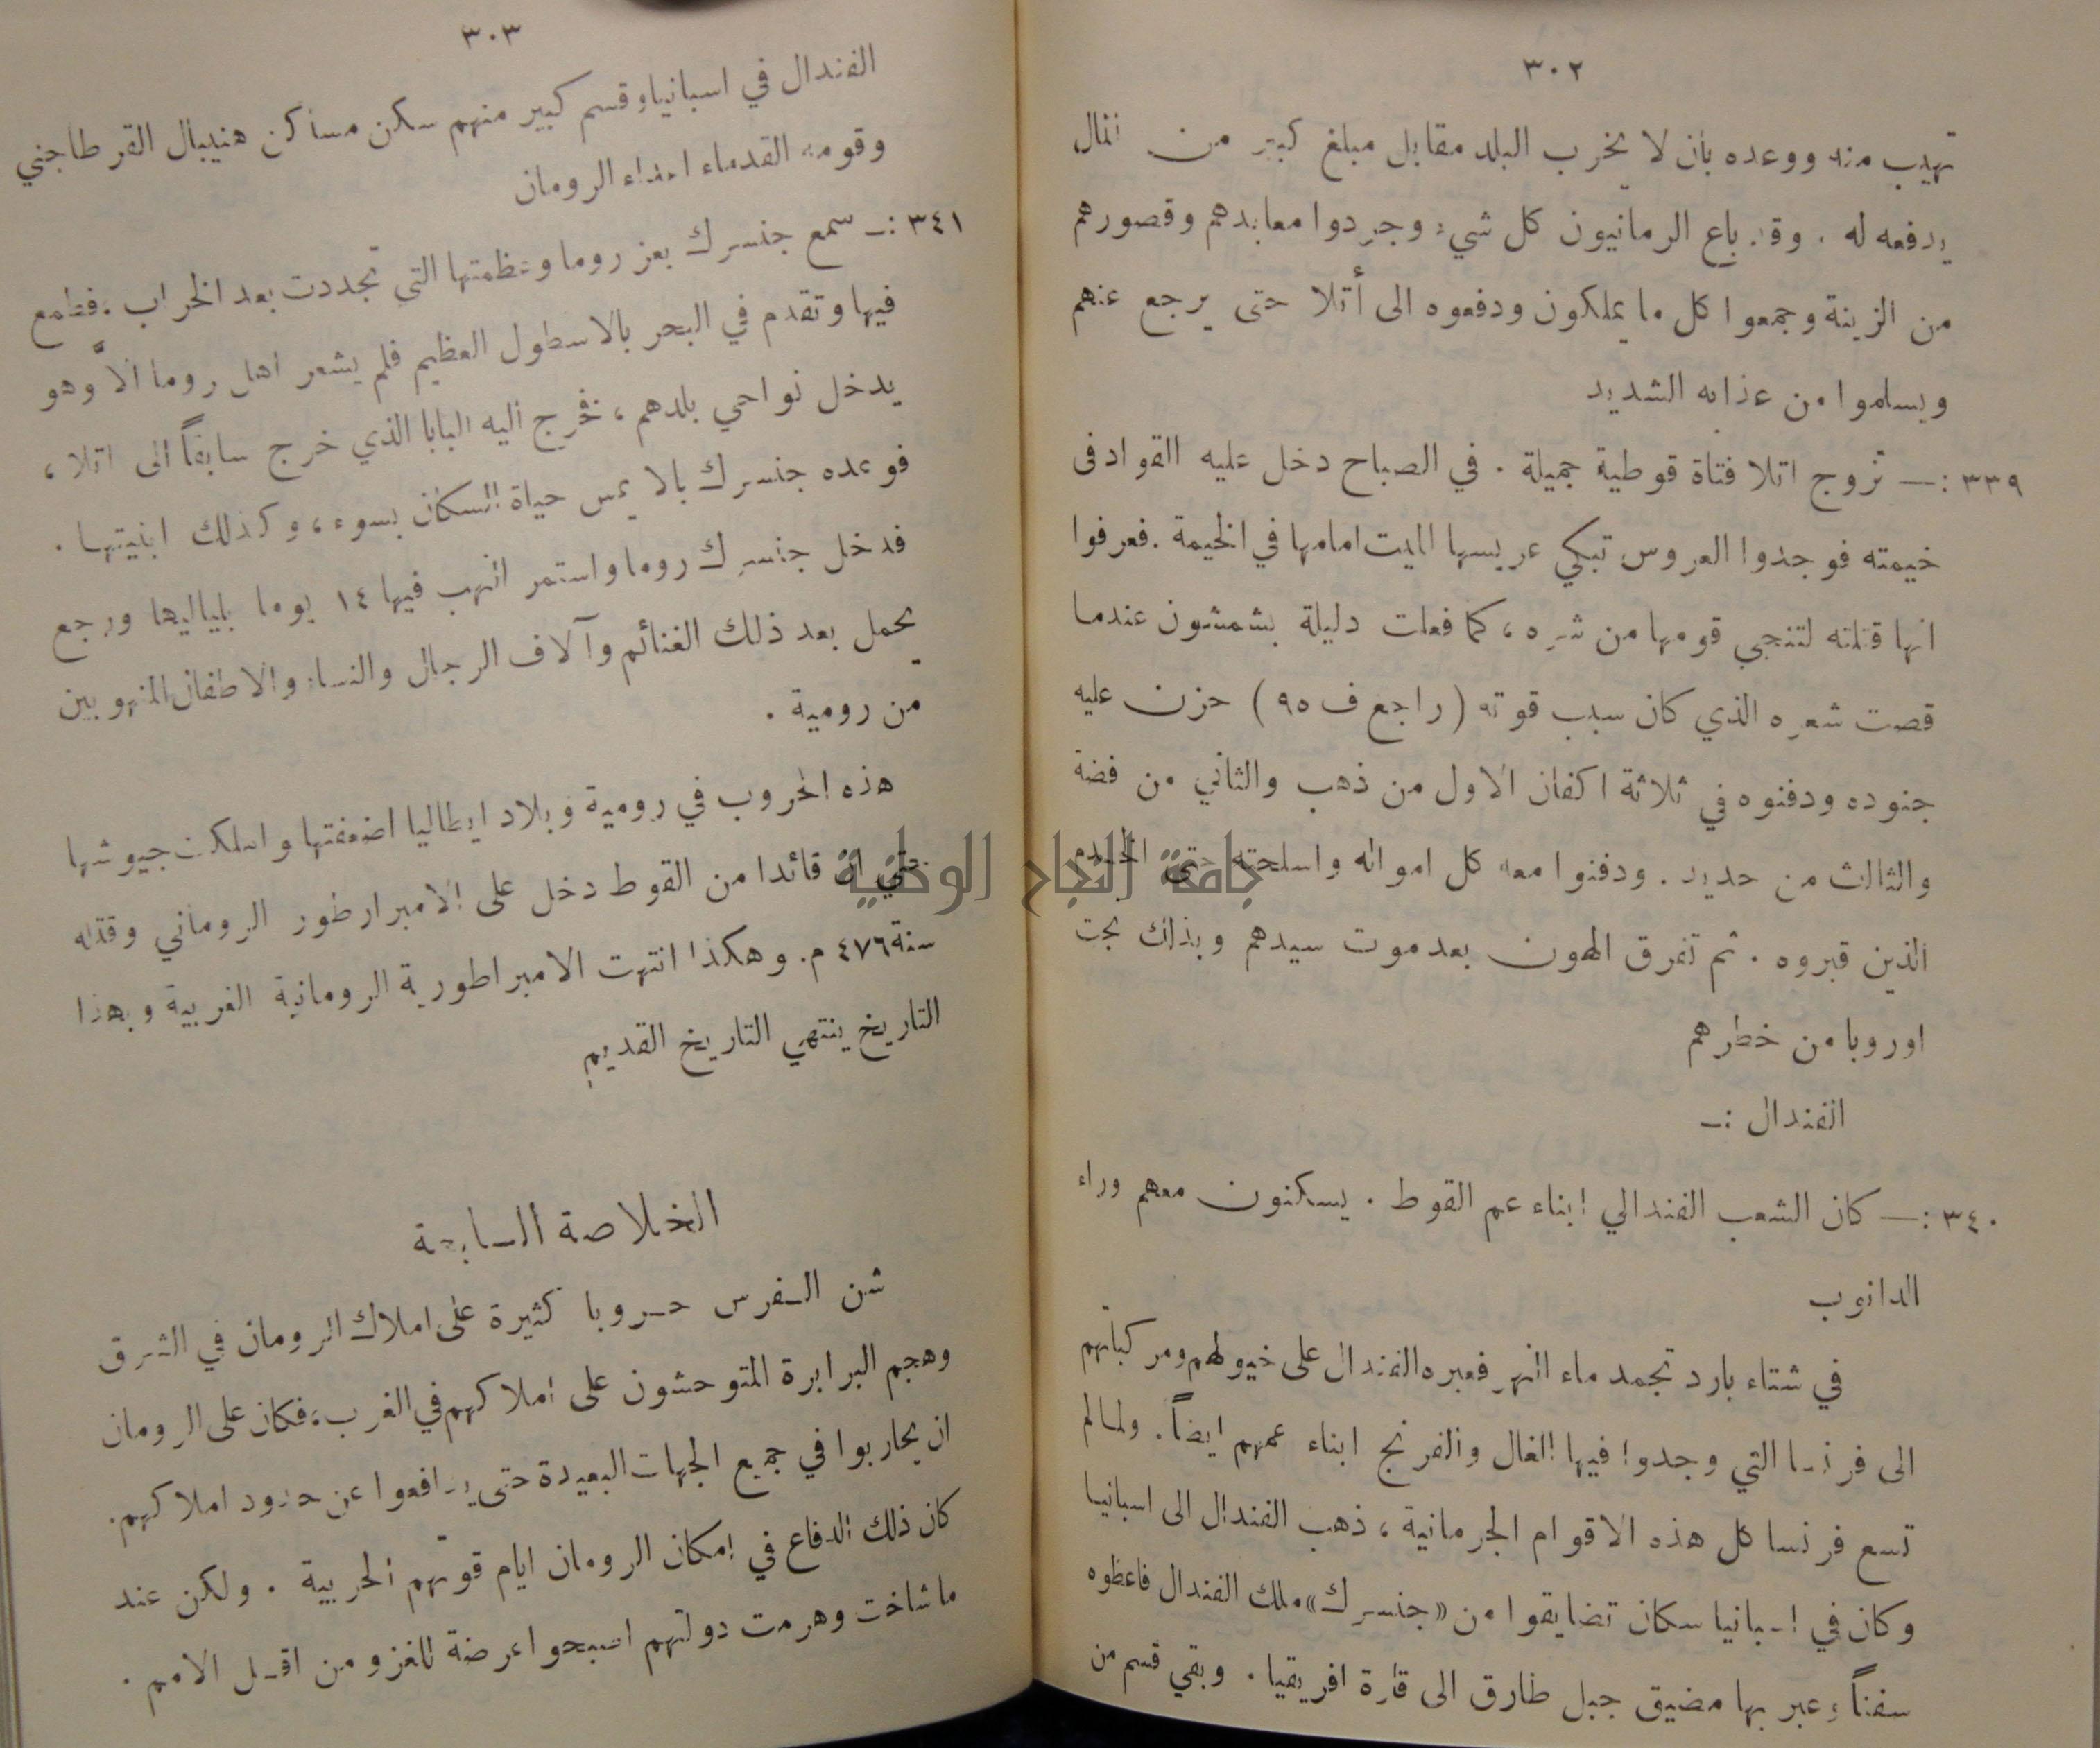 ٣٠٢
تهيب منه ووعده بأن لا يخرب البلد مقابل مبلغ كبير من المال
يدفعه له . وقد باع الرمانيون كل شيء وجردوا معابدهم وقصورهم
من الزينة وجمعوا كل ما يملكون ودفعوه الى أتلا حتى يرجع عنهم
ويسلموا من عذابه الشديد
٣٣٩ :— تزوج اتلا فتاة قوطية جميلة . في الصباح دخل عليه القواد في
خيمته فوجدوا العروس تبكي عريسها الميت امامها في الخيمة . فعرفوا
انها قتلته لتنجي قومها من شره ، كما فعلت دليلة بشمشون عندما
قصت شعره الذي كان سبب قوته ( راجع ف ٩٥ ) حزن عليه
جنوده ودفنوه في ثلاثة اكفان الاول من ذهب والثاني من فضة
والثالث من حديد . ودفنوا معه كل امواله واسلحته حتى الخدم
الذين قبروه . ثم تفرق الهون بعد موت سيدهم وبذلك نجت
اوروبا من خطرهم
الفندال :—
٣٤٠ :— كان الشعب الفندالي ابناء عم القوط . يسكنون معهم وراء
الدانوب
في شتاء بارد تجمد ماء النهر فعبره الفندال على خيولهم ومركباتهم
الى فرنسا التي وجدوا فيها الغال والفرنج ابناء عمهم ايضاً . ولما لم
تسع فرنسا كل هذه الاقوام الجرمانية ، ذهب الفندال الى اسبانيا
وكان في اسبانيا سكان تضايقوا من «جنسرك» ملك الفندال فاعطوه
سفناً وعبر بها مضيق جبل طارق الى قارة افريقيا . وبقي قسم من
٣٠٣
الفندال في اسبانيا وقسم كبير منهم سكن مساكن هنيبال القرطاجني
وقومه القدماء اعداء الرومان
٣٤١ :— سمع جنسرك بعز روما وعظمتها التي تجددت بعد الخراب ، فطمع
فيها وتقدم في البحر بالاسطول العظيم فلم يشعر اهل روما الاّ وهو
يدخل نواحي بلدهم ، فخرج اليه البابا الذي خرج سابقاً الى اتلا ،
فوعده جنسرك بالا يمس حياة السكان بسوء ، وكذلك ابنيتها .
فدخل جنسرك روما واستمر النهب فيها ١٤ يوما بلياليها ورجع
يحمل بعد ذلك الغنائم وآلاف الرجال والنساء والاطفال المنهوبين
من رومية .
هذه الحروب في رومية وبلاد ايطاليا اضعفتها واهلكت جيوشها
حتى ان قائدا من القوط دخل على الامبرارطور الروماني وقتله
سنة ٤٧٦ م. وهكذا انتهت الامبراطورية الرومانية الغربية وبهذا
التاريخ ينتهي التاريخ القديم
الخلاصة السابعة
شن الفرس حروبا كثيرة على املاك الرومان في الشرق
وهجم البرابرة المتوحشون على املاكهم في الغرب ، فكان على الرومان
ان يحاربوا في جميع الجهات البعيدة حتى يدافعوا عن حدود املاكهم .
كان ذلك الدفاع في امكان الرومان ايام قوتهم الحربية . ولكن عند
ما شاخت وهرمت دولتهم اصبحوا عرضة للغزو من اقل الامم .
جامعة النجاح الوطنية